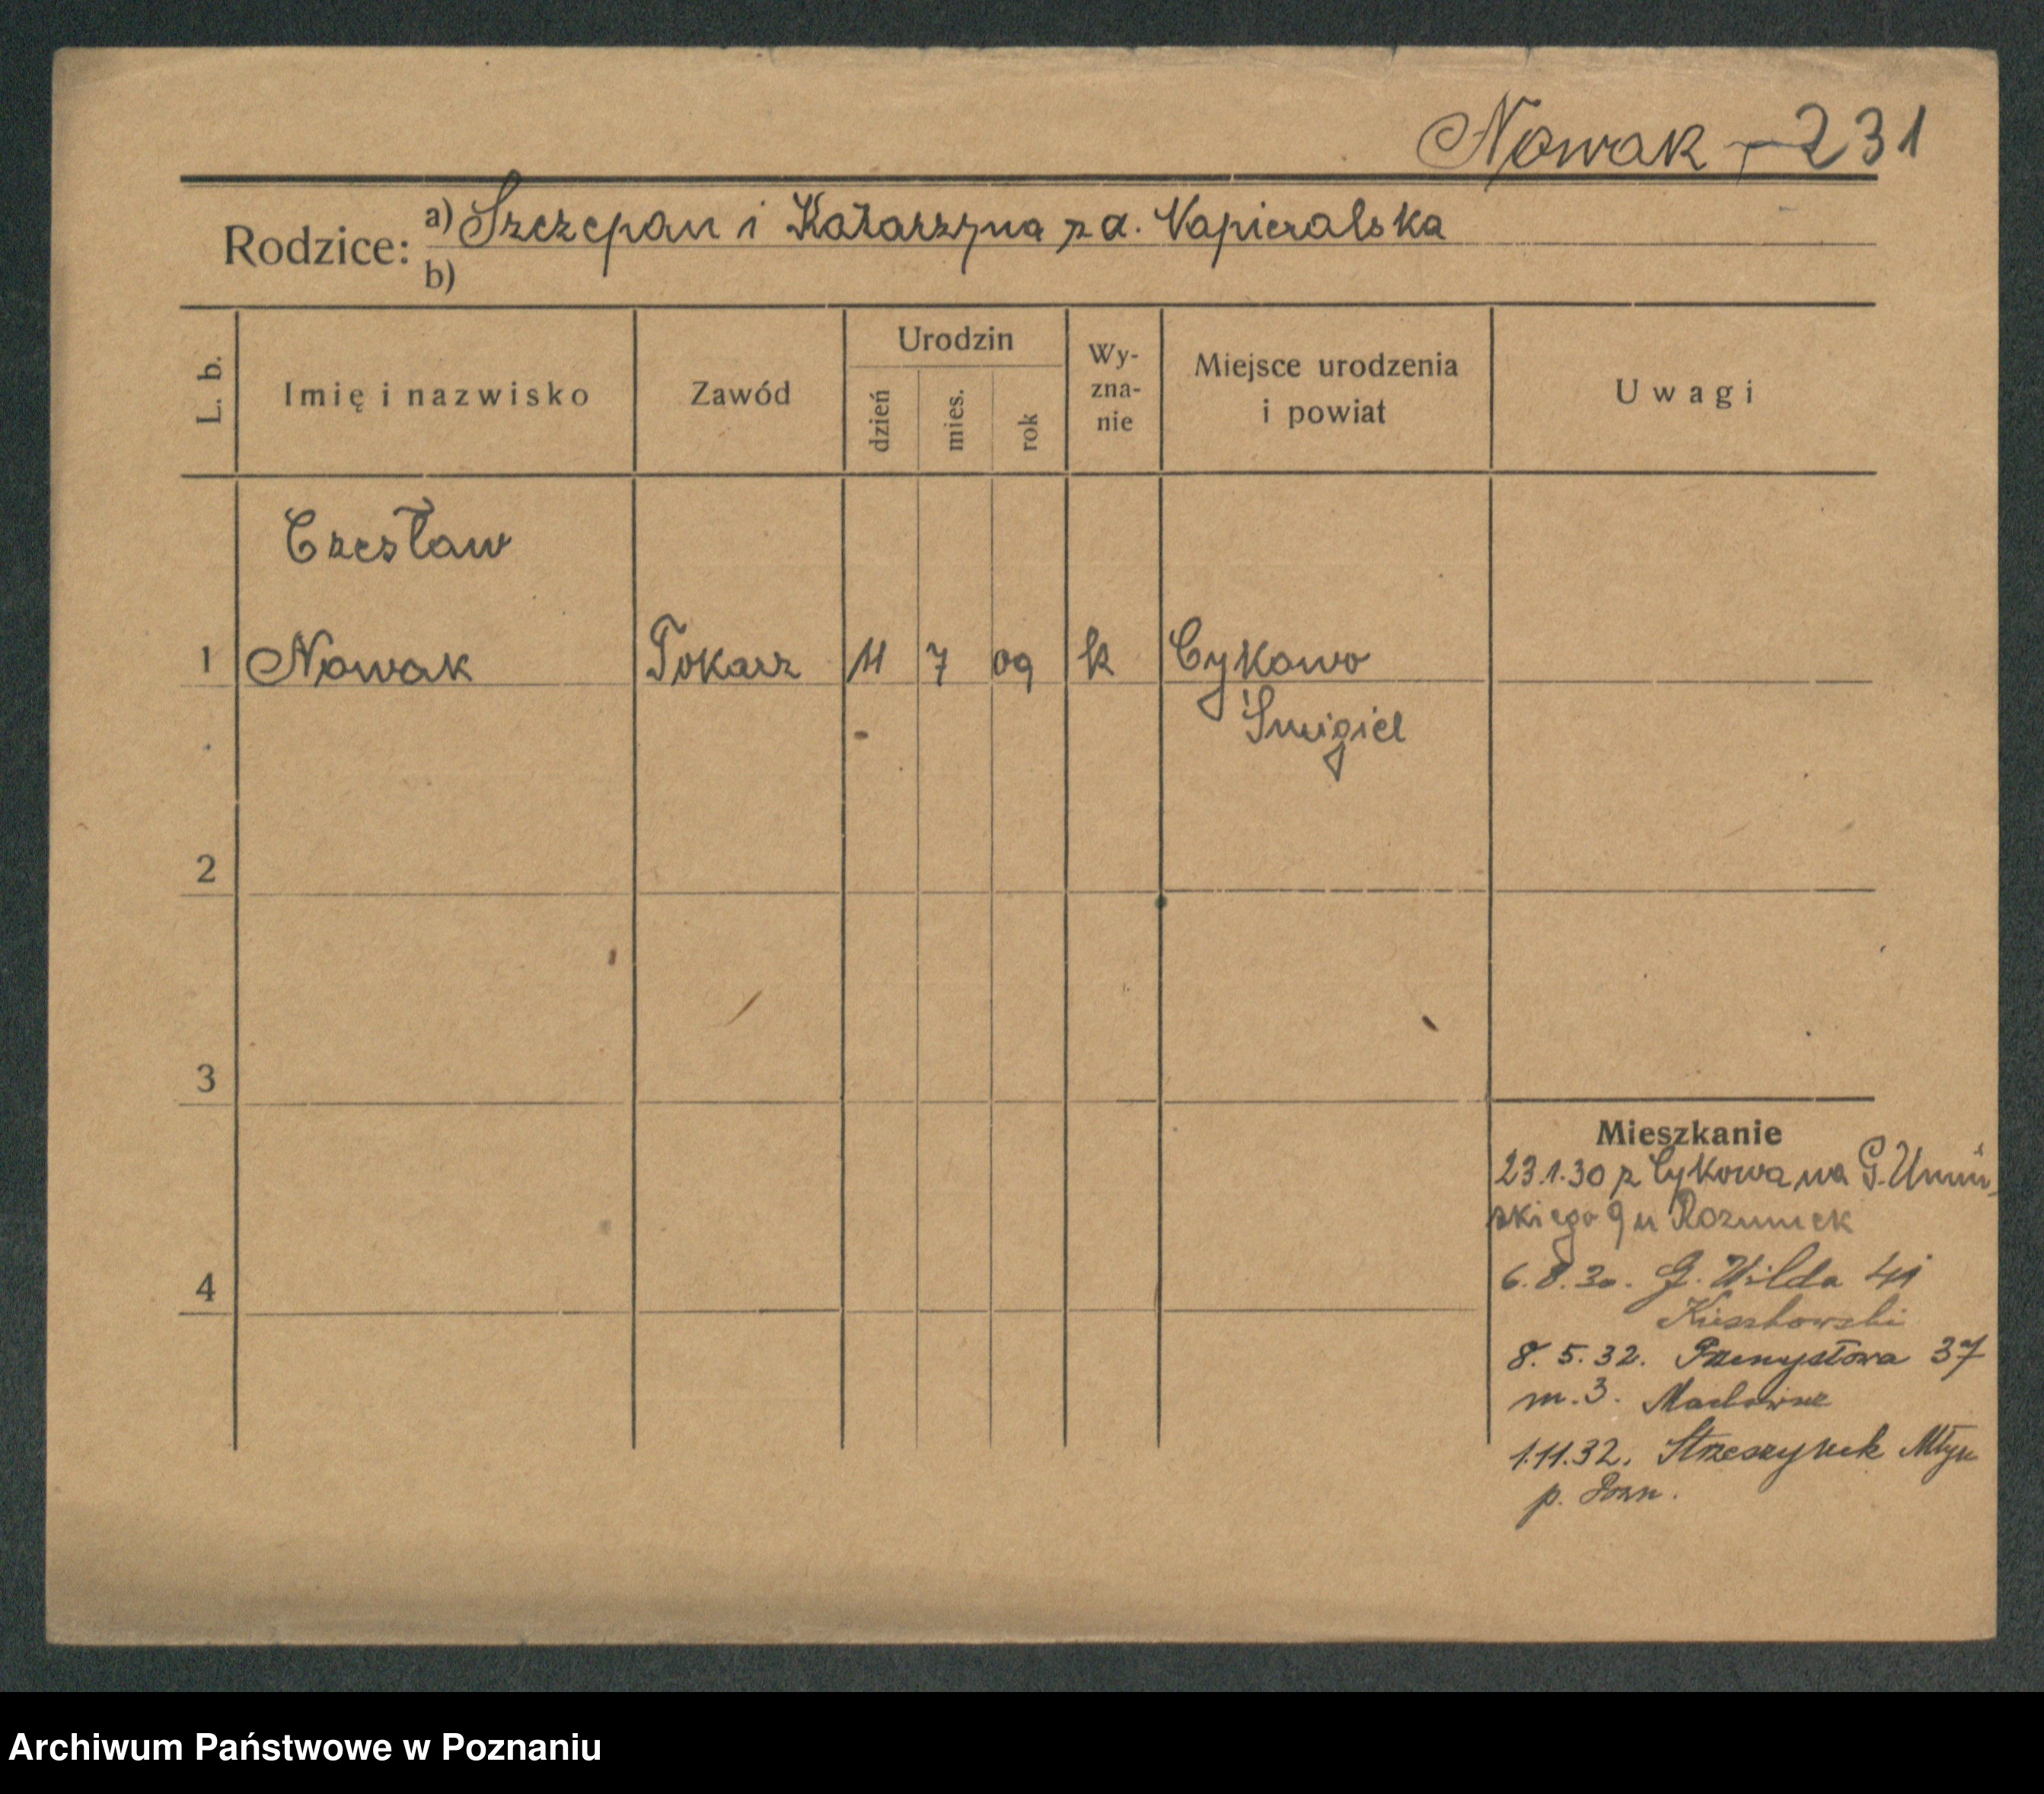 Nowak - 231
Rodzice: a) Szczepan i Katarzyna z d. Napieralska
b)
L. b. Imię i nazwisko Zawód Urodzin dzień mies. rok Wy-zna-nie Miejsce urodzenia i powiat Uwagi
Czesław
1 Nowak Tokarz 11 7 09 k Cykowo
Śmigiel
2
3
Mieszkanie
23.1.30 z Cykowa na G. Umiń-
skiego 9 u Rozumek
4
6.8.30. G. Wilda 41
8.5.32. Przemysłowa 37
m. 3.
1.11.32. Strzeszynek Młyn
p. Pozn.
Archiwum Państwowe w Poznaniu